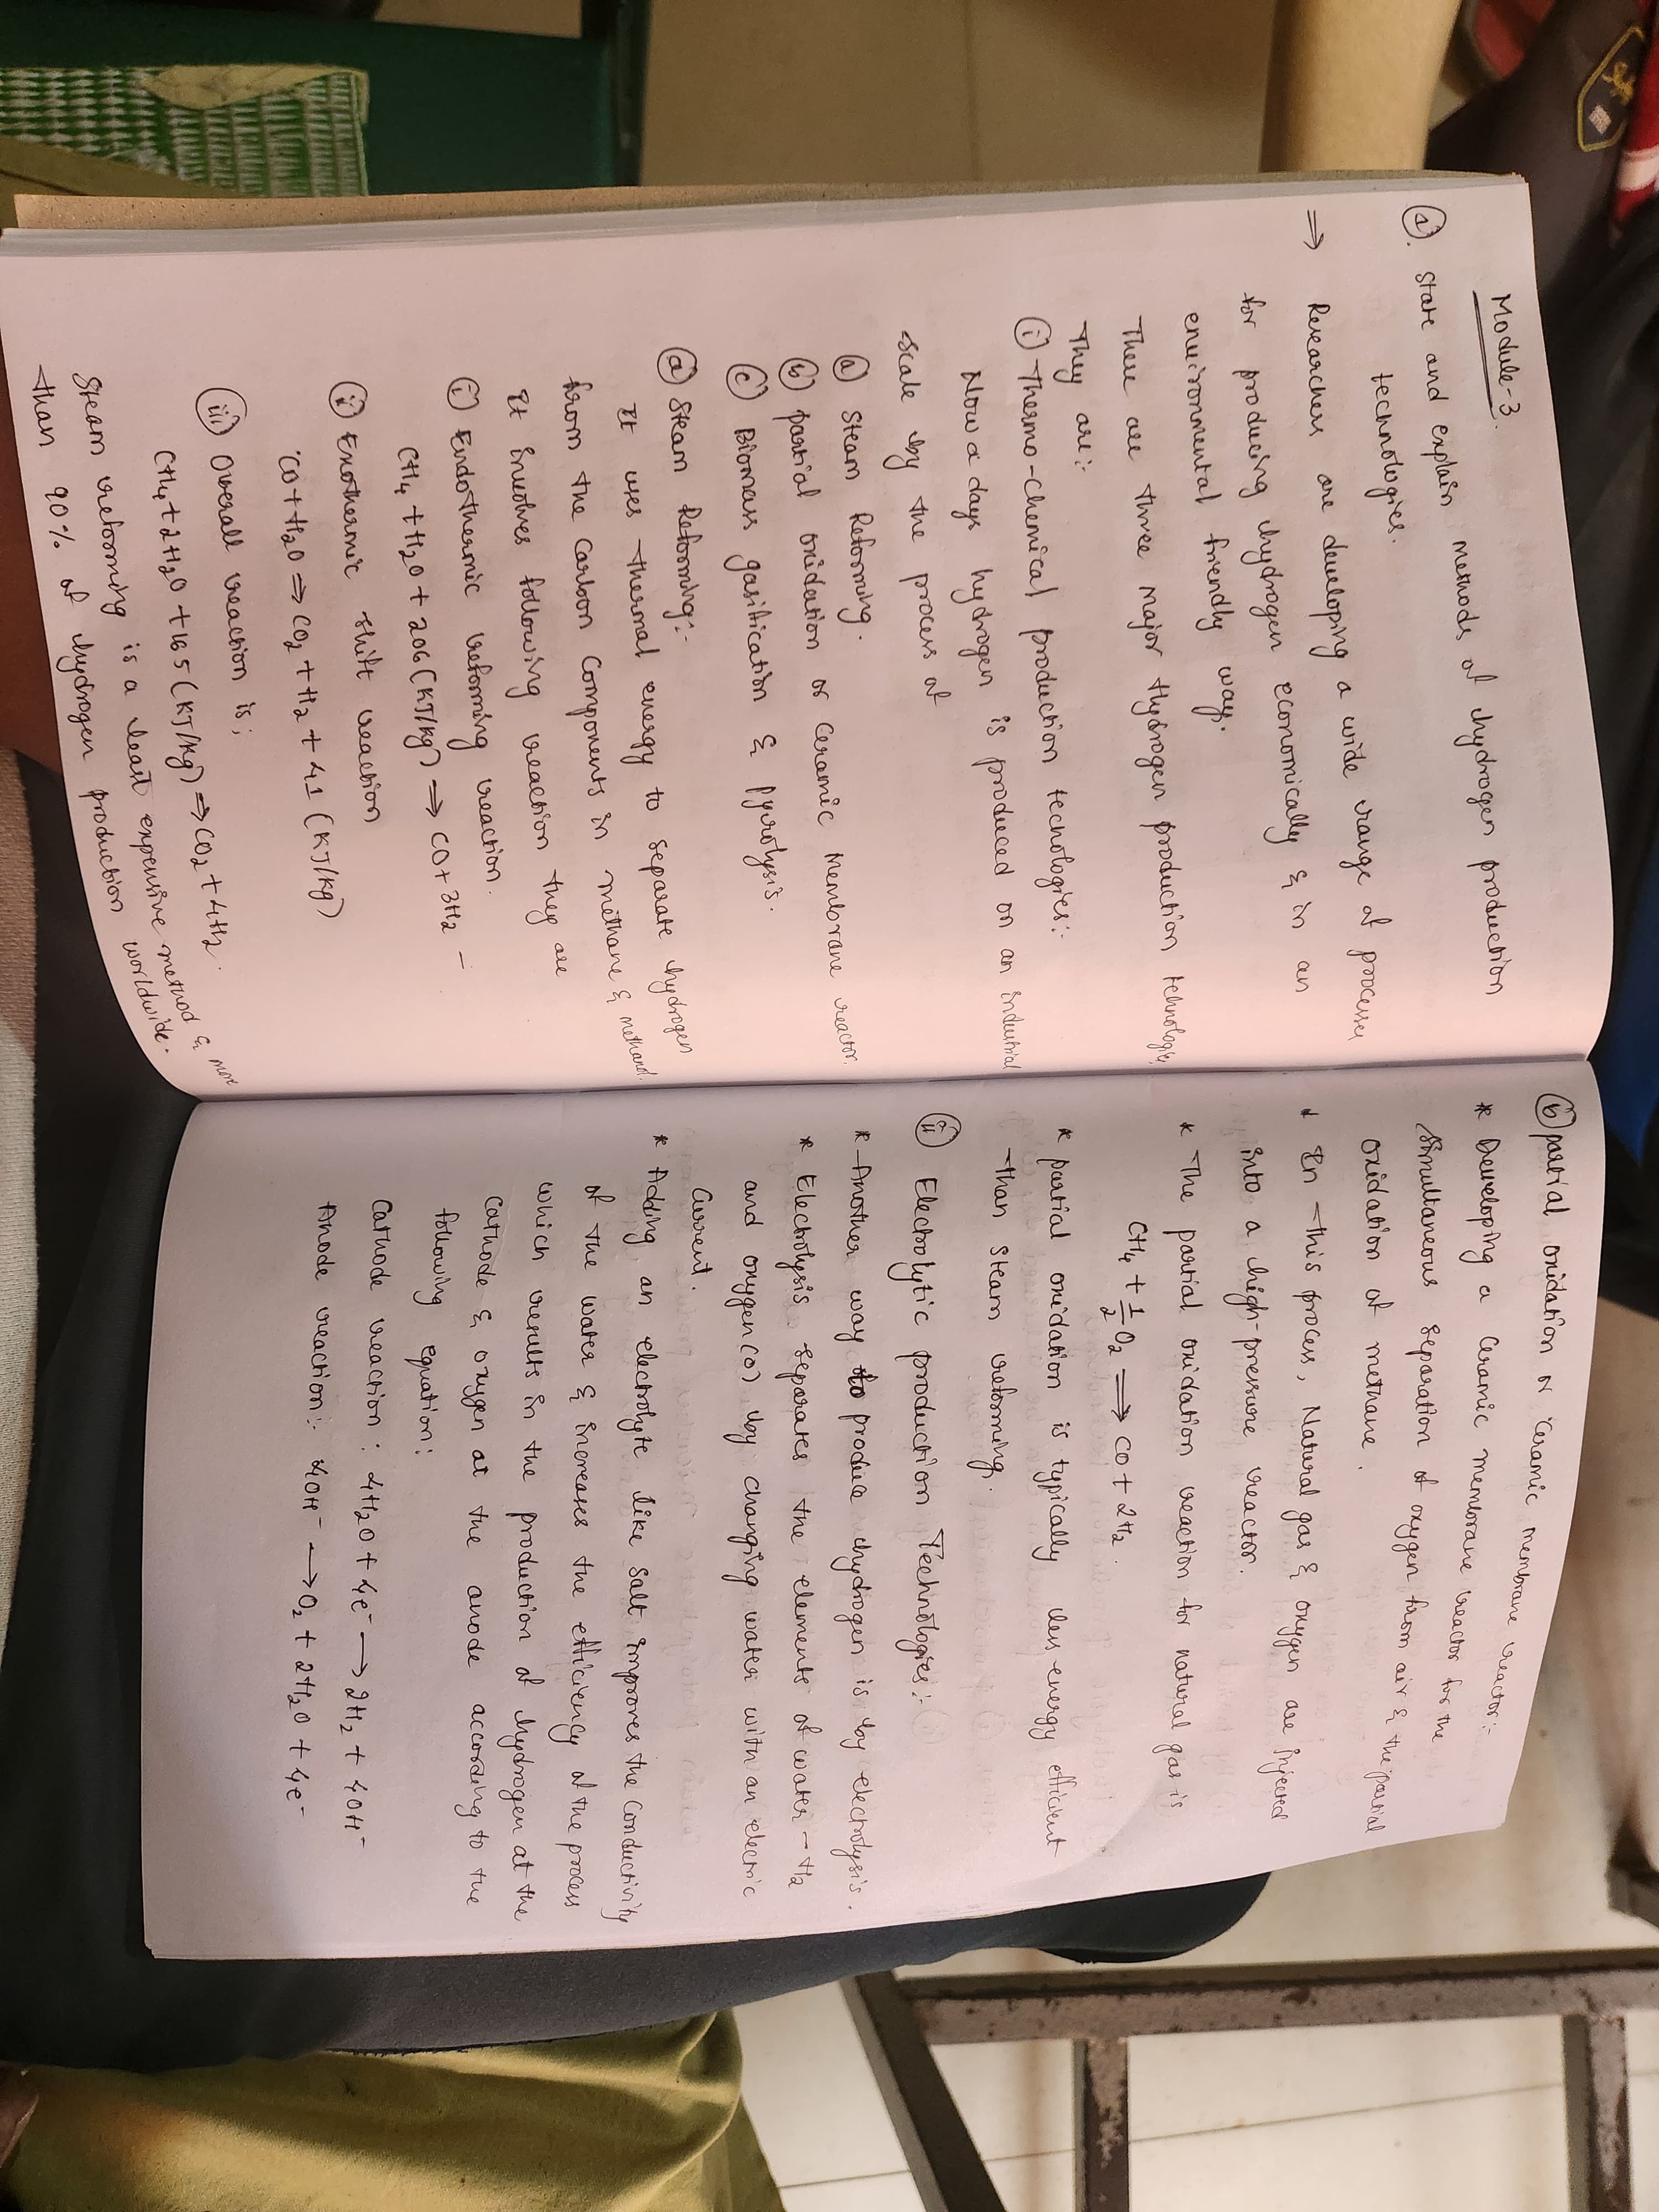 Module-3.
① State and explain methods of hydrogen production
technologies.
⇒ Researchers are developing a wide range of processes
for producing hydrogen economically & in an
environmental friendly way.
There are three major Hydrogen production technologies,
They are:-
ⓘ Thermo-Chemical production tecnologies:-
Now a days hydrogen is produced on an industrial
scale by the process of
ⓐ Steam Reforming.
ⓑ partial oxidation or Ceramic Membrane reactor.
ⓒ Biomass gasification & pyrolysis.
ⓐ Steam Reforming:-
It uses thermal energy to separate hydrogen
from the Carbon Components in methane & methanol.
It involves following reaction they are
ⓘ Endothermic reforming reaction.
CH₄ + H₂O + 206 (KJ/kg) ⇒ CO + 3H₂ -
(ii) Exothermic shift reaction
CO + H₂O ⇒ CO₂ + H₂ + 41 (KJ/kg)
(iii) Overall reaction is;
CH₄ + 2H₂O + 165 (KJ/kg) ⇒ CO₂ + 4H₂.
Steam reforming is a least expensive method & more
than 90% of hydrogen production worldwide.
ⓑ partial oxidation or Ceramic membrane reactor:-
* Developing a Ceramic membrane reactor for the
simultaneous separation of oxygen from air & the partial
oxidation of methane.
* In this process, Natural gas & oxygen are injected
into a high-pressure reactor.
* The partial oxidation reaction for natural gas is
CH₄ + 1/2 O₂ ⇒ CO + 2H₂.
* partial oxidation is typically less energy efficient
than steam reforming.
(ii) Electrolytic production Technologies:-
* Another way to produce hydrogen is by electrolysis.
* Electrolysis separates the elements of water - H₂
and oxygen (O) by changing water with an electric
Current.
* Adding an electrolyte like salt improves the Conductivity
of the water & increases the efficiency of the process
which results in the production of hydrogen at the
Cathode & oxygen at the anode according to the
following equation:
Cathode reaction: 4H₂O + 4e⁻ → 2H₂ + 4OH⁻
Anode reaction:- 4OH⁻ → O₂ + 2H₂O + 4e⁻